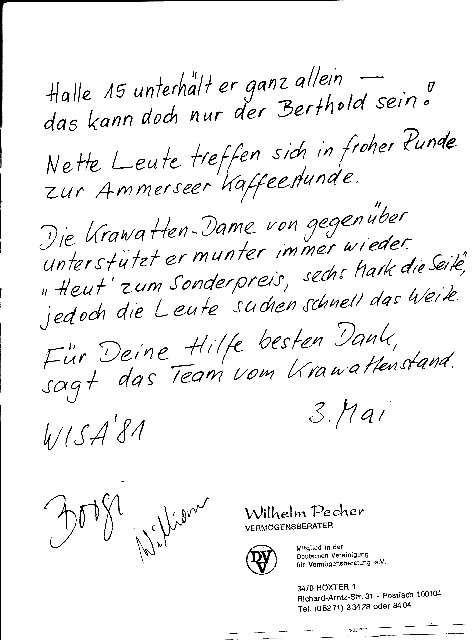 Halle 15 unterhält er ganz allein —
das kann doch nur der Berthold sein!
Nette Leute treffen sich in froher Runde
zur Ammerseer Kaffeestunde.
Die Krawatten-Dame von gegenüber
unterstützt er munter immer wieder.
"Heut' zum Sonderpreis, sechs Mark die Seide",
jedoch die Leute suchen schnell das Weite.
Für Deine Hilfe besten Dank,
sagt das Team vom Krawattenstand.
WISA '81
3. Mai
Boogi
William
Wilhelm Pecher
VERMÖGENSBERATER
DVV
Mitglied in der
Deutschen Vereinigung
für Vermögensberatung e.V.
3470 HÖXTER 1
Richard-Arntz-Str. 31 - Postfach 100104
Tel. (05271) 33128 oder 8404